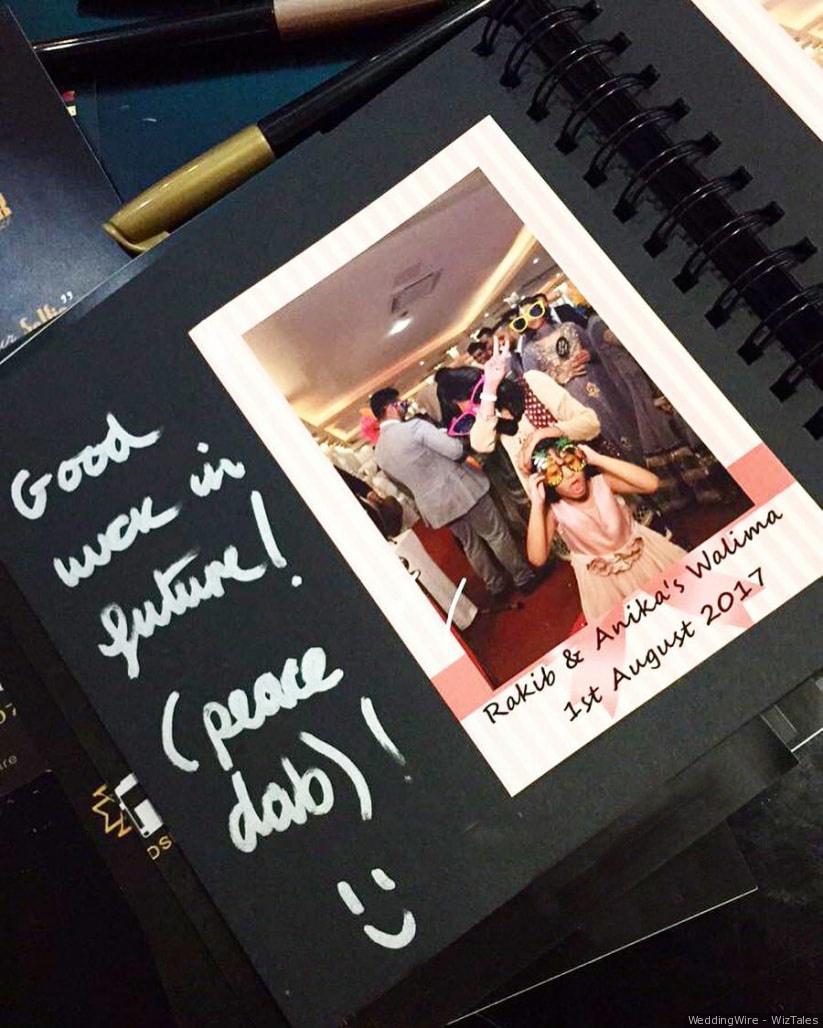 Good
luck in
future!
(peace
dab)!
Rakib & Anika's Walima
1st August 2017
WeddingWire - WizTales